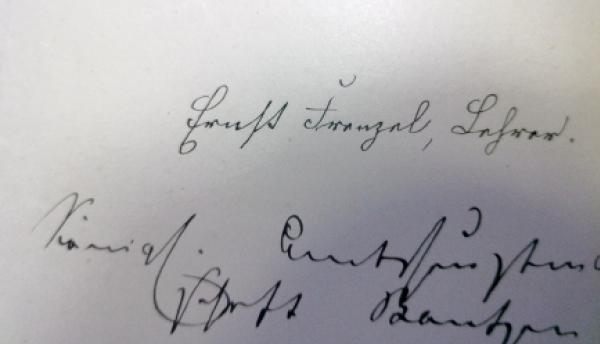 Ernst Frenzel, Lehrer.
Königl. Amtshauptman
schaft Bautzen